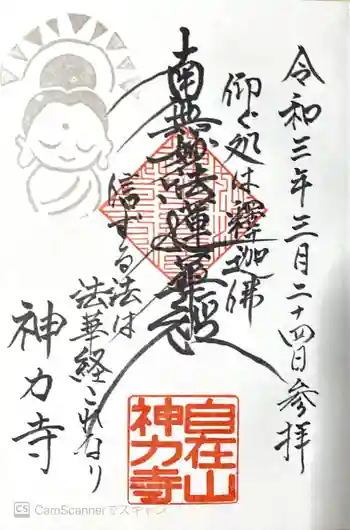 令和三年三月二十四日参拝
仰ぐ処は釋迦佛
南無妙法蓮華経
信ずる法は
法華経これなり
神力寺
自在山
神力寺
CS CamScannerでスキャン